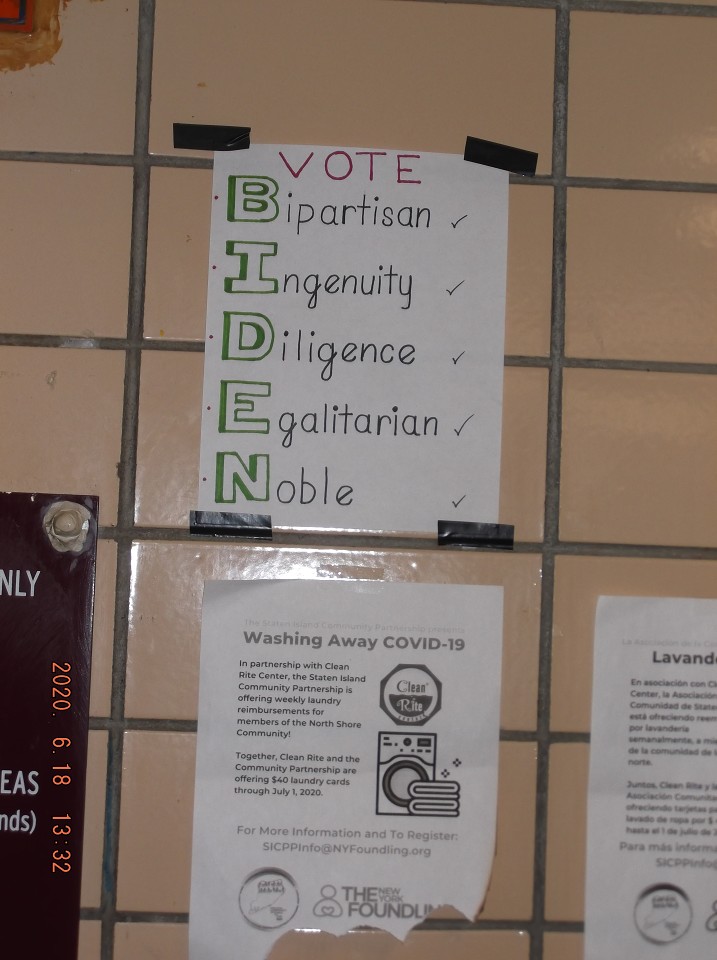 VOTE
Bipartisan ✓
Ingenuity ✓
Diligence ✓
Egalitarian ✓
Noble ✓
The Staten Island Community Partnership presents
Washing Away COVID-19
In partnership with Clean
Rite Center, the Staten Island
Community Partnership is
offering weekly laundry
reimbursements for
members of the North Shore
Community!
Together, Clean Rite and the
Community Partnership are
offering $40 laundry cards
through July 1, 2020.
Clean
Rite
For More Information and To Register:
SICPPInfo@NYFoundling.org
THE NEW YORK
FOUNDLIN
Lavand
En asociación con Cl
Center, la Asociación
Comunidad de State
está ofreciendo reem
por lavandería
semanalmente, a mie
de la comunidad de l
norte.
Juntos, Clean Rite y l
Asociación Comunita
ofreciendo tarjetas pa
lavado de ropa por $
hasta el 1 de julio de
Para más inform
SICPPInfo
NLY
EAS
nds)
2020. 6.18 13:32